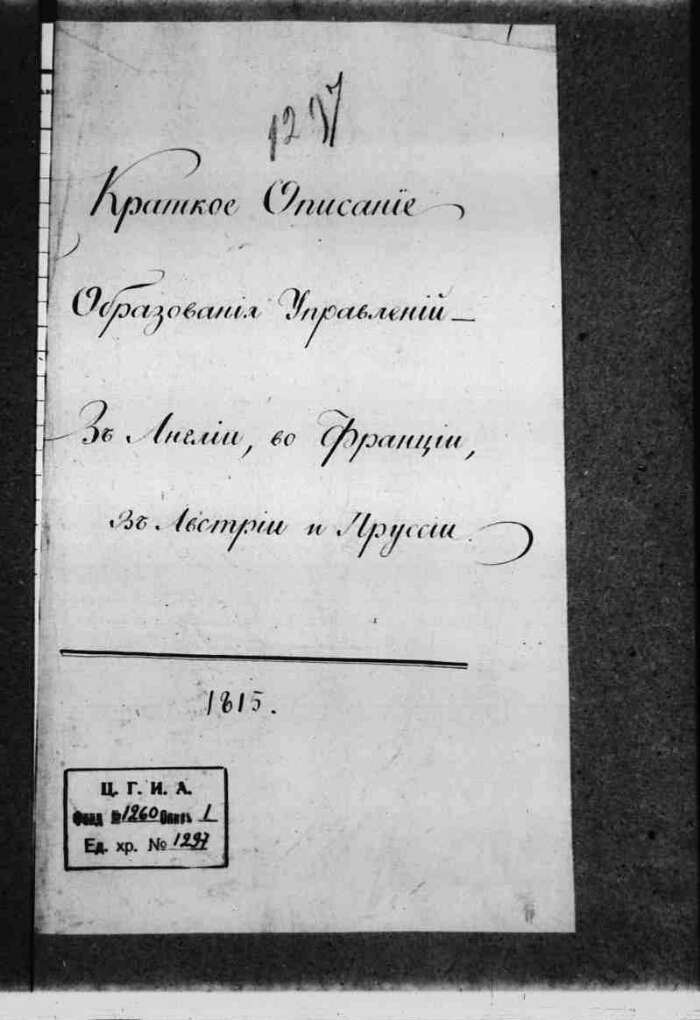 1297
Краткое Описаніе
Образованія Управленій
Въ Англіи, во Франціи,
въ Австріи и Пруссіи.
1815.
Ц. Г. И. А.
Фонд № 1260 Опись 1
Ед. хр. № 1297